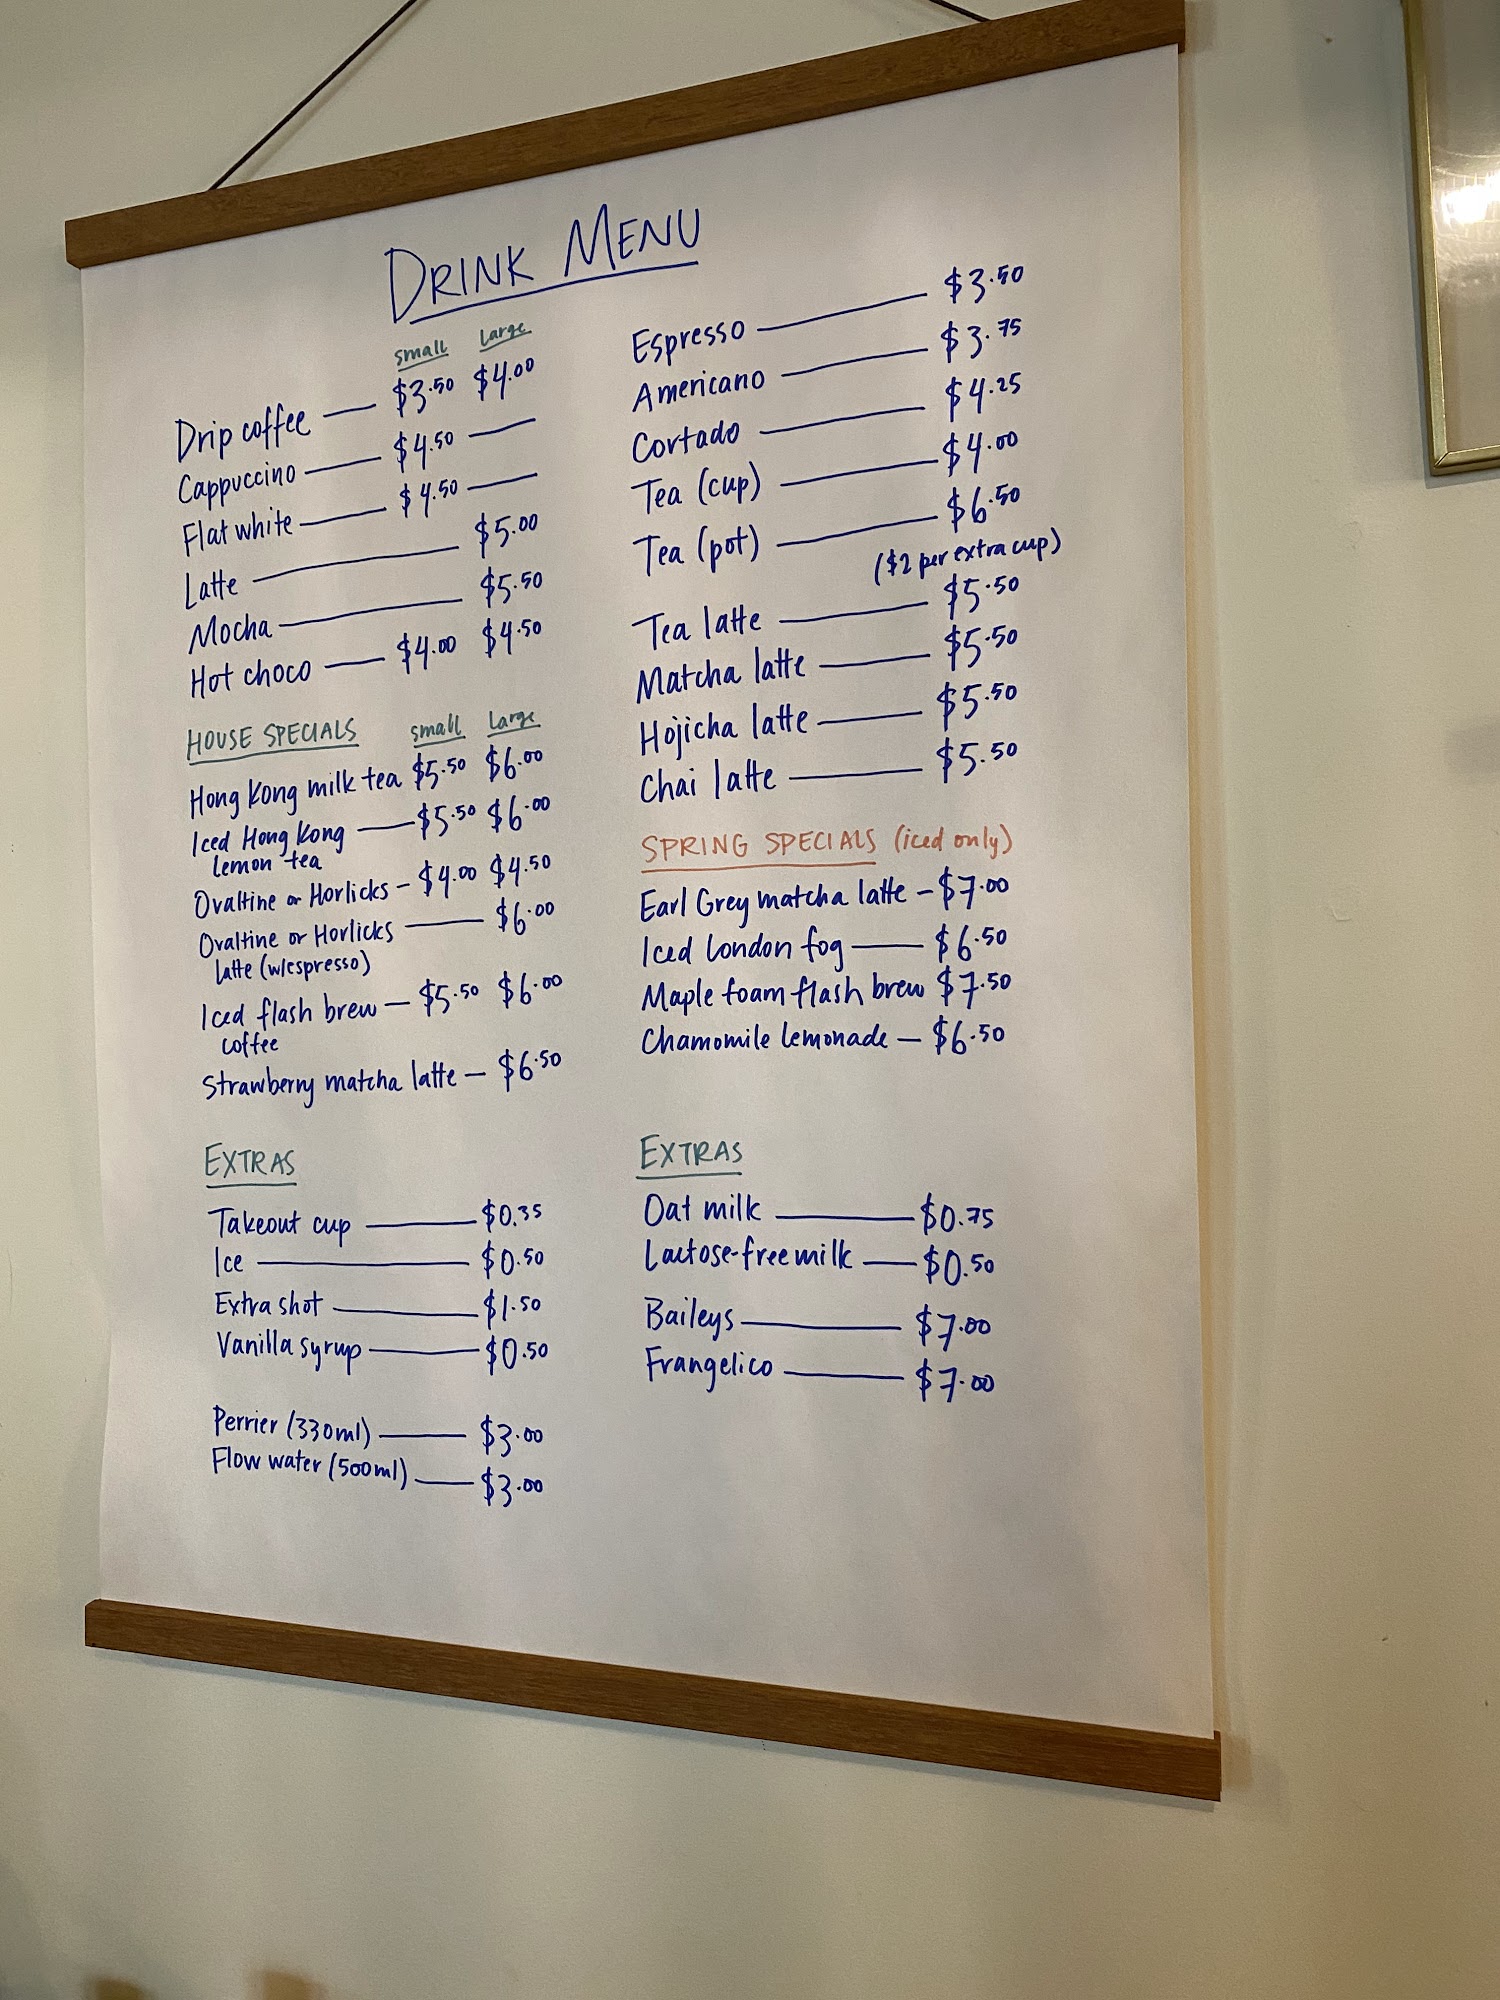 DRINK MENU
small large
Drip coffee $3.50 $4.00
Cappuccino $4.50
Flat white $4.50
Latte $5.00
Mocha $5.50
Hot choco $4.00 $4.50
HOUSE SPECIALS small Large
Hong Kong milk tea $5.50 $6.00
Iced Hong Kong $5.50 $6.00
lemon tea
Ovaltine or Horlicks - $4.00 $4.50
Ovaltine or Horlicks $6.00
latte (w/espresso)
Iced flash brew - $5.50 $6.00
coffee
Strawberry matcha latte - $6.50
EXTRAS
Takeout cup $0.35
Ice $0.50
Extra shot $1.50
Vanilla syrup $0.50
Perrier (330ml) $3.00
Flow water (500ml) $3.00
Espresso $3.50
Americano $3.75
Cortado $4.25
Tea (cup) $4.00
Tea (pot) $6.50
($2 per extra cup)
Tea latte $5.50
Matcha latte $5.50
Hojicha latte $5.50
Chai latte $5.50
SPRING SPECIALS (iced only)
Earl Grey matcha latte - $7.00
Iced London fog $6.50
Maple foam flash brew $7.50
Chamomile lemonade - $6.50
EXTRAS
Oat milk $0.75
Lactose-free milk $0.50
Baileys $7.00
Frangelico $7.00